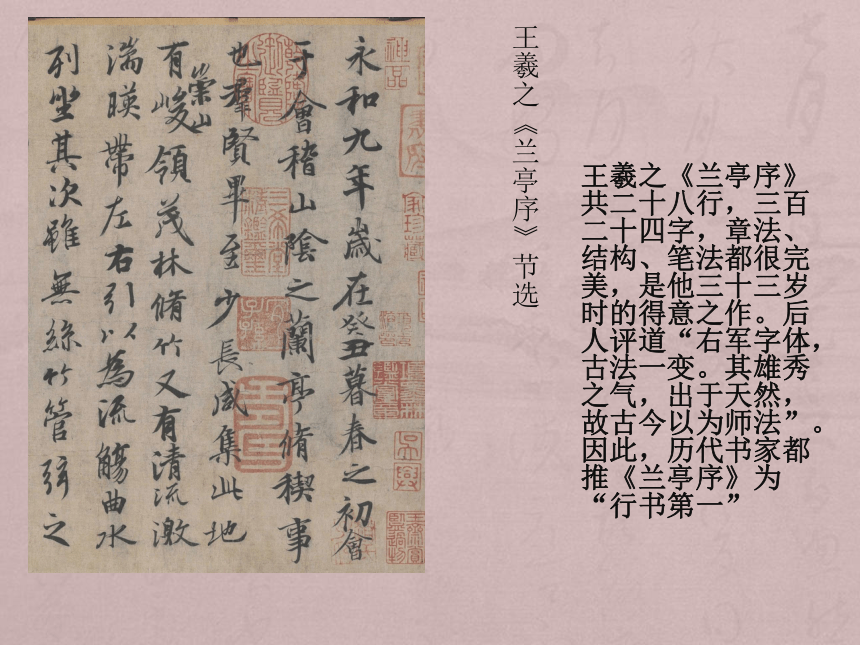 永和九年歲在癸丑暮春之初會
于會稽山陰之蘭亭脩稧事
也羣賢畢至少長咸集此地
有崇山峻領茂林脩竹又有清流激
湍暎帶左右引以為流觴曲水
列坐其次雖無絲竹管弦之
神品
王羲之《兰亭序》节选
王羲之《兰亭序》
共二十八行，三百
二十四字，章法、
结构、笔法都很完
美，是他三十三岁
时的得意之作。后
人评道“右军字体，
古法一变。其雄秀
之气，出于天然，
故古今以为师法”。
因此，历代书家都
推《兰亭序》为
“行书第一”